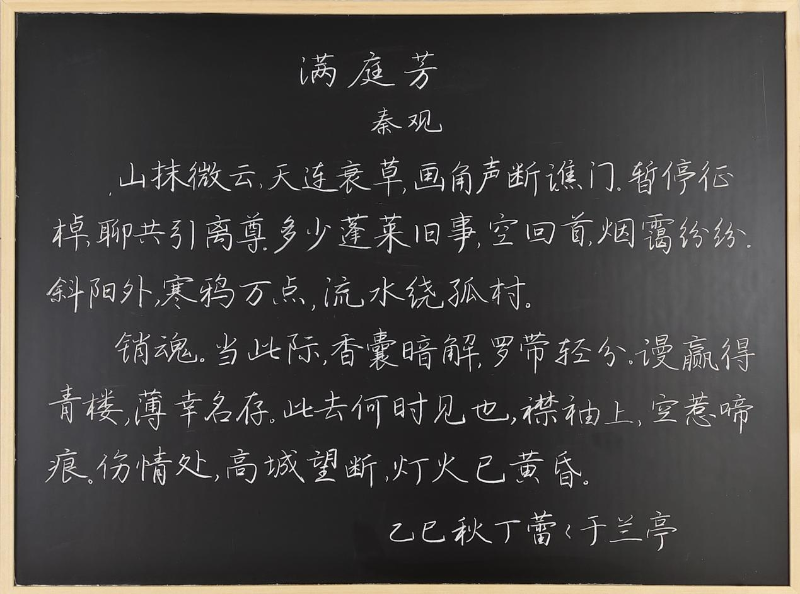 满庭芳
秦观
山抹微云,天连衰草,画角声断谯门.暂停征
棹,聊共引离尊.多少蓬莱旧事,空回首,烟霭纷纷.
斜阳外,寒鸦万点,流水绕孤村。
销魂。当此际,香囊暗解,罗带轻分。谩赢得
青楼,薄幸名存。此去何时见也,襟袖上,空惹啼
痕。伤情处,高城望断,灯火已黄昏。
乙巳秋丁蕾く于兰亭